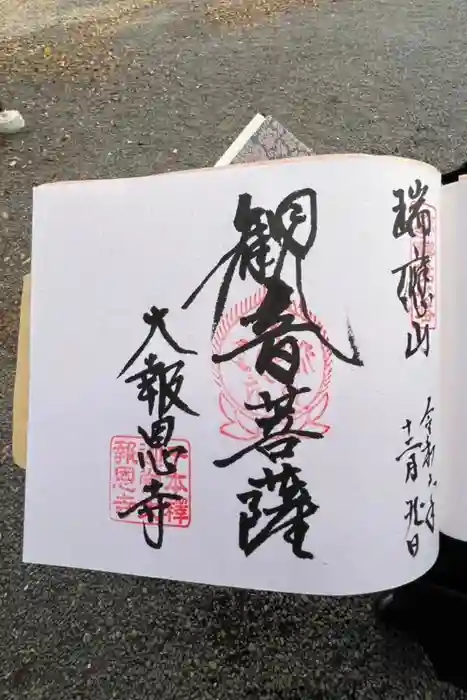 瑞應山
令和六年
十二月 吉日
観音菩薩
大報恩寺
千本釋
迦堂
報恩寺